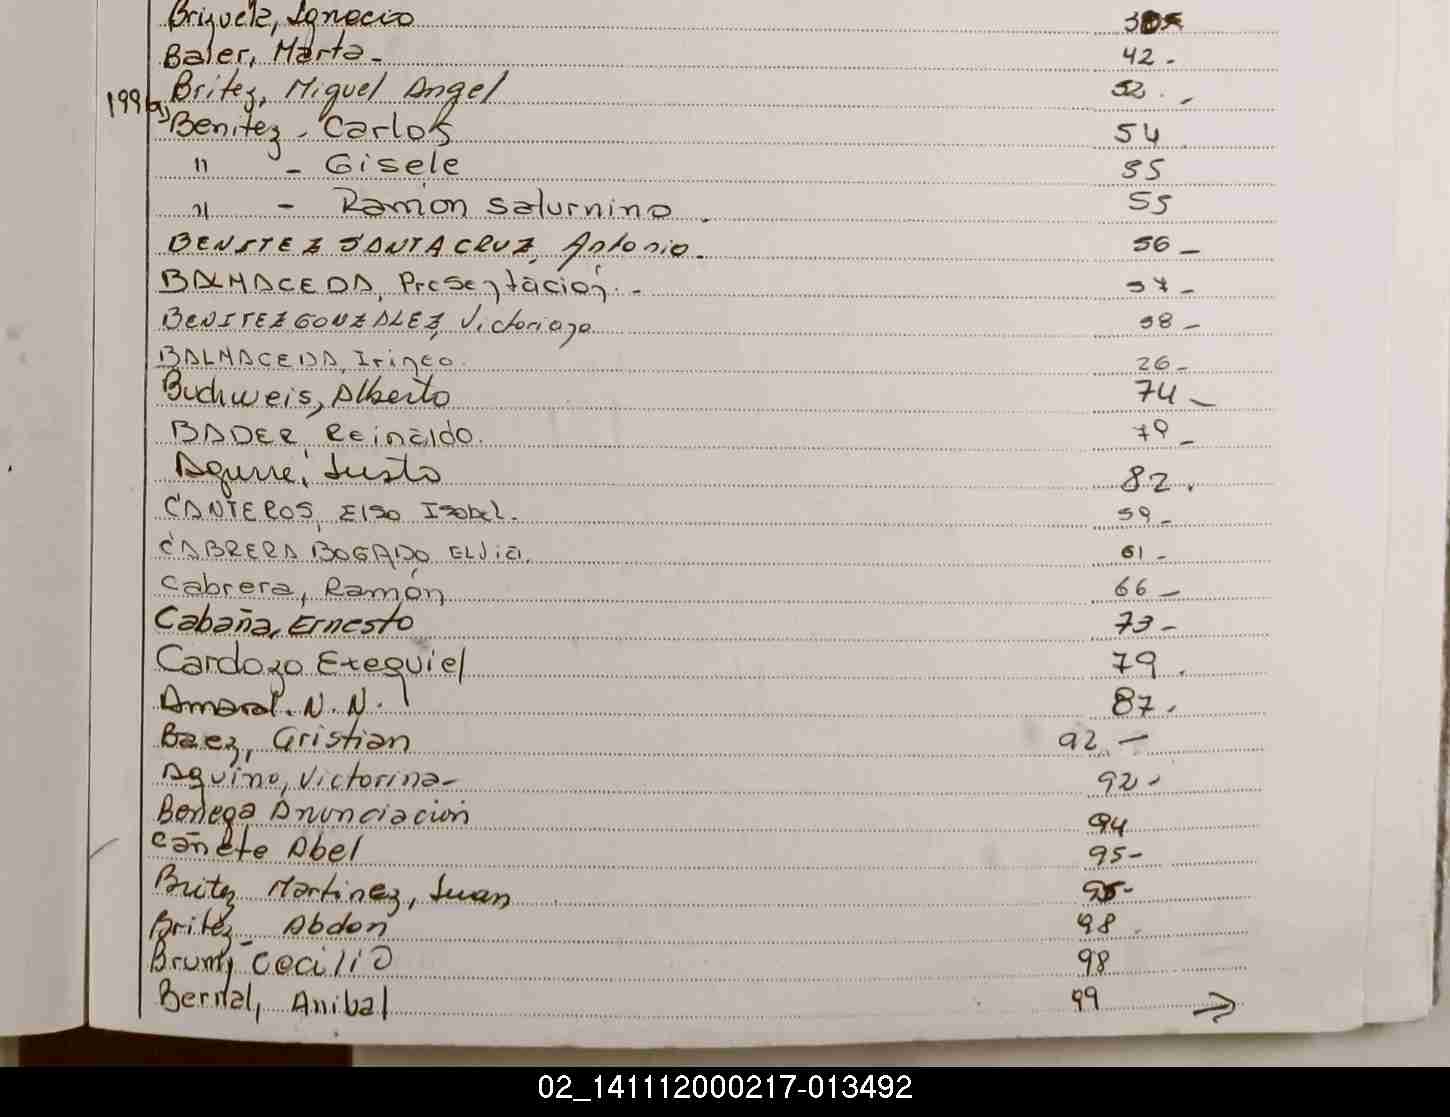 Brizuela, Ignacio 
Baler, Marta - 42 -
Britez, Miguel Angel 52 . -
1996 Benitez - Carlos 54
" - Gisele 55
" - Ramón Saturnino . 55
BENITEZ SANTACRUZ, Antonio. 56 -
BALMACEDA, Presentación. - 57 -
BENITEZ GONZALEZ, Victoriana 58 -
BALMACEDA, Irineo. 26 -
Buchweis, Alberto 74 -
BADER, Reinaldo. 79 -
Aguirre, Justo 82 .
CANTEROS, Elsa Isabel. 59 -
CABRERA BOGADO, Elvia. 61 -
Cabrera, Ramón 66 -
Cabaña, Ernesto 73 -
Cardozo Exequiel 79 .
Amaral. N. N. 87 .
Baez, Cristian 92. -
Aquino, Victorina - 92 -
Benega Anunciación 94
Cañete Abel 95-
Britez Martinez, Juan 95-
Britez - Abdon 98 .
Cecilio 98
Bernal, Anibal 99 →
02_141112000217-013492